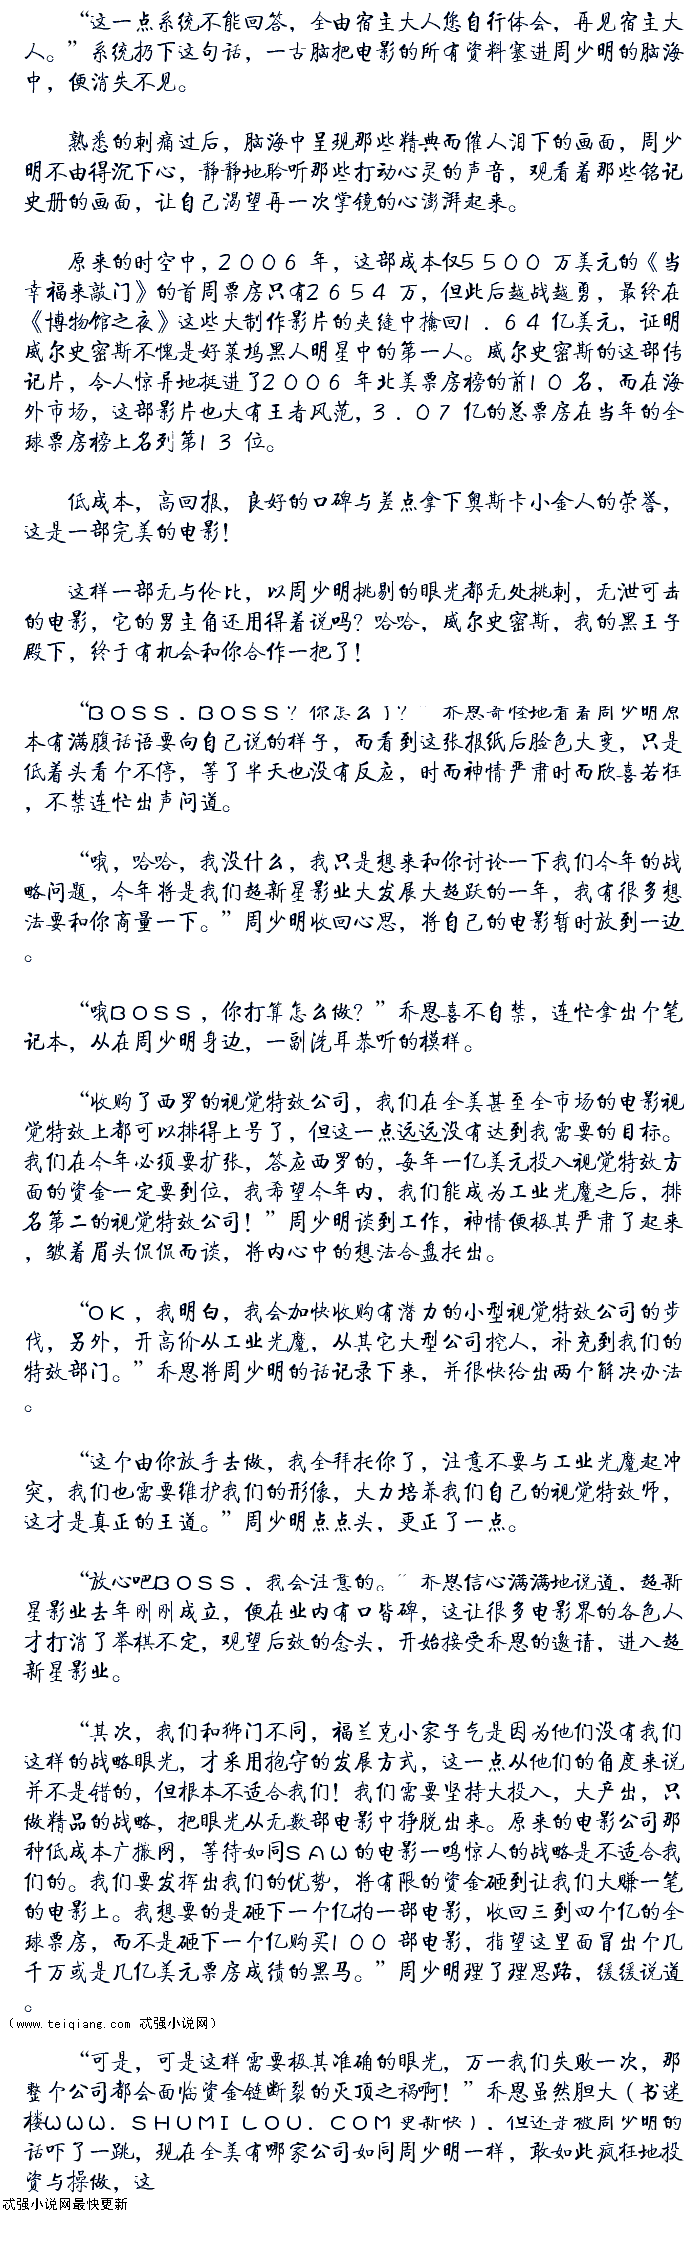 “这一点系统不能回答，全由宿主大人您自行体会，再见宿主大
人。”系统扔下这句话，一古脑把电影的所有资料塞进周少明的脑海
中，便消失不见。
熟悉的刺痛过后，脑海中呈现那些精典而催人泪下的画面，周少
明不由得沉下心，静静地聆听那些打动心灵的声音，观看着那些铭记
史册的画面，让自己渴望再一次掌镜的心澎湃起来。
原来的时空中，2006年，这部成本仅5500万美元的《当
幸福来敲门》的首周票房只有2654万，但此后越战越勇，最终在
《博物馆之夜》这些大制作影片的夹缝中擒回1.64亿美元，证明
威尔史密斯不愧是好莱坞黑人明星中的第一人。威尔史密斯的这部传
记片，令人惊异地挺进了2006年北美票房榜的前10名，而在海
外市场，这部影片也大有王者风范，3.07亿的总票房在当年的全
球票房榜上名列第13位。
低成本，高回报，良好的口碑与差点拿下奥斯卡小金人的荣誉，
这是一部完美的电影！
这样一部无与伦比，以周少明挑剔的眼光都无处挑刺，无泄可击
的电影，它的男主角还用得着说吗？哈哈，威尔史密斯，我的黑王子
殿下，终于有机会和你合作一把了！
“BOSS，BOSS？你怎么了？”乔恩奇怪地看着周少明原
本有满腹话语要向自己说的样子，而看到这张报纸后脸色大变，只是
低着头看个不停，等了半天也没有反应，时而神情严肃时而欣喜若狂
，不禁连忙出声问道。
“哦，哈哈，我没什么，我只是想来和你讨论一下我们今年的战
略问题，今年将是我们超新星影业大发展大超跃的一年，我有很多想
法要和你商量一下。”周少明收回心思，将自己的电影暂时放到一边
。
“哦BOSS，你打算怎么做？”乔恩喜不自禁，连忙拿出个笔
记本，从在周少明身边，一副洗耳恭听的模样。
“收购了西罗的视觉特效公司，我们在全美甚至全市场的电影视
觉特效上都可以排得上号了，但这一点远远没有达到我需要的目标。
我们在今年必须要扩张，答应西罗的，每年一亿美元投入视觉特效方
面的资金一定要到位，我希望今年内，我们能成为工业光魔之后，排
名第二的视觉特效公司！”周少明谈到工作，神情便极其严肃了起来
，皱着眉头侃侃而谈，将内心中的想法合盘托出。
“OK，我明白，我会加快收购有潜力的小型视觉特效公司的步
伐，另外，开高价从工业光魔，从其它大型公司挖人，补充到我们的
特效部门。”乔恩将周少明的话记录下来，并很快给出两个解决办法
。
“这个由你放手去做，我全拜托你了，注意不要与工业光魔起冲
突，我们也需要维护我们的形像，大力培养我们自己的视觉特效师，
这才是真正的王道。”周少明点点头，更正了一点。
“放心吧BOSS，我会注意的。”乔恩信心满满地说道，超新
星影业去年刚刚成立，便在业内有口皆碑，这让很多电影界的各色人
才打消了举棋不定，观望后效的念头，开始接受乔恩的邀请，进入超
新星影业。
“其次，我们和狮门不同，福兰克小家子气是因为他们没有我们
这样的战略眼光，才采用抱守的发展方式，这一点从他们的角度来说
并不是错的，但根本不适合我们！我们需要坚持大投入，大产出，只
做精品的战略，把眼光从无数部电影中挣脱出来。原来的电影公司那
种低成本广撒网，等待如同SAW的电影一鸣惊人的战略是不适合我
们的。我们要发挥出我们的优势，将有限的资金砸到让我们大赚一笔
的电影上。我想要的是砸下一个亿拍一部电影，收回三到四个亿的全
球票房，而不是砸下一个亿购买100部电影，指望这里面冒出个几
千万或是几亿美元票房成绩的黑马。”周少明理了理思路，缓缓说道
。
（www.teiqiang.com 忒强小说网）
“可是，可是这样需要极其准确的眼光，万一我们失败一次，那
整个公司都会面临资金链断裂的灭顶之祸啊！”乔恩虽然胆大（书迷
楼WWW.SHUMILOU.COM更新快），但还是被周少明的
话吓了一跳，现在全美有哪家公司如同周少明一样，敢如此疯狂地投
资与操做，这
忒强小说网最快更新